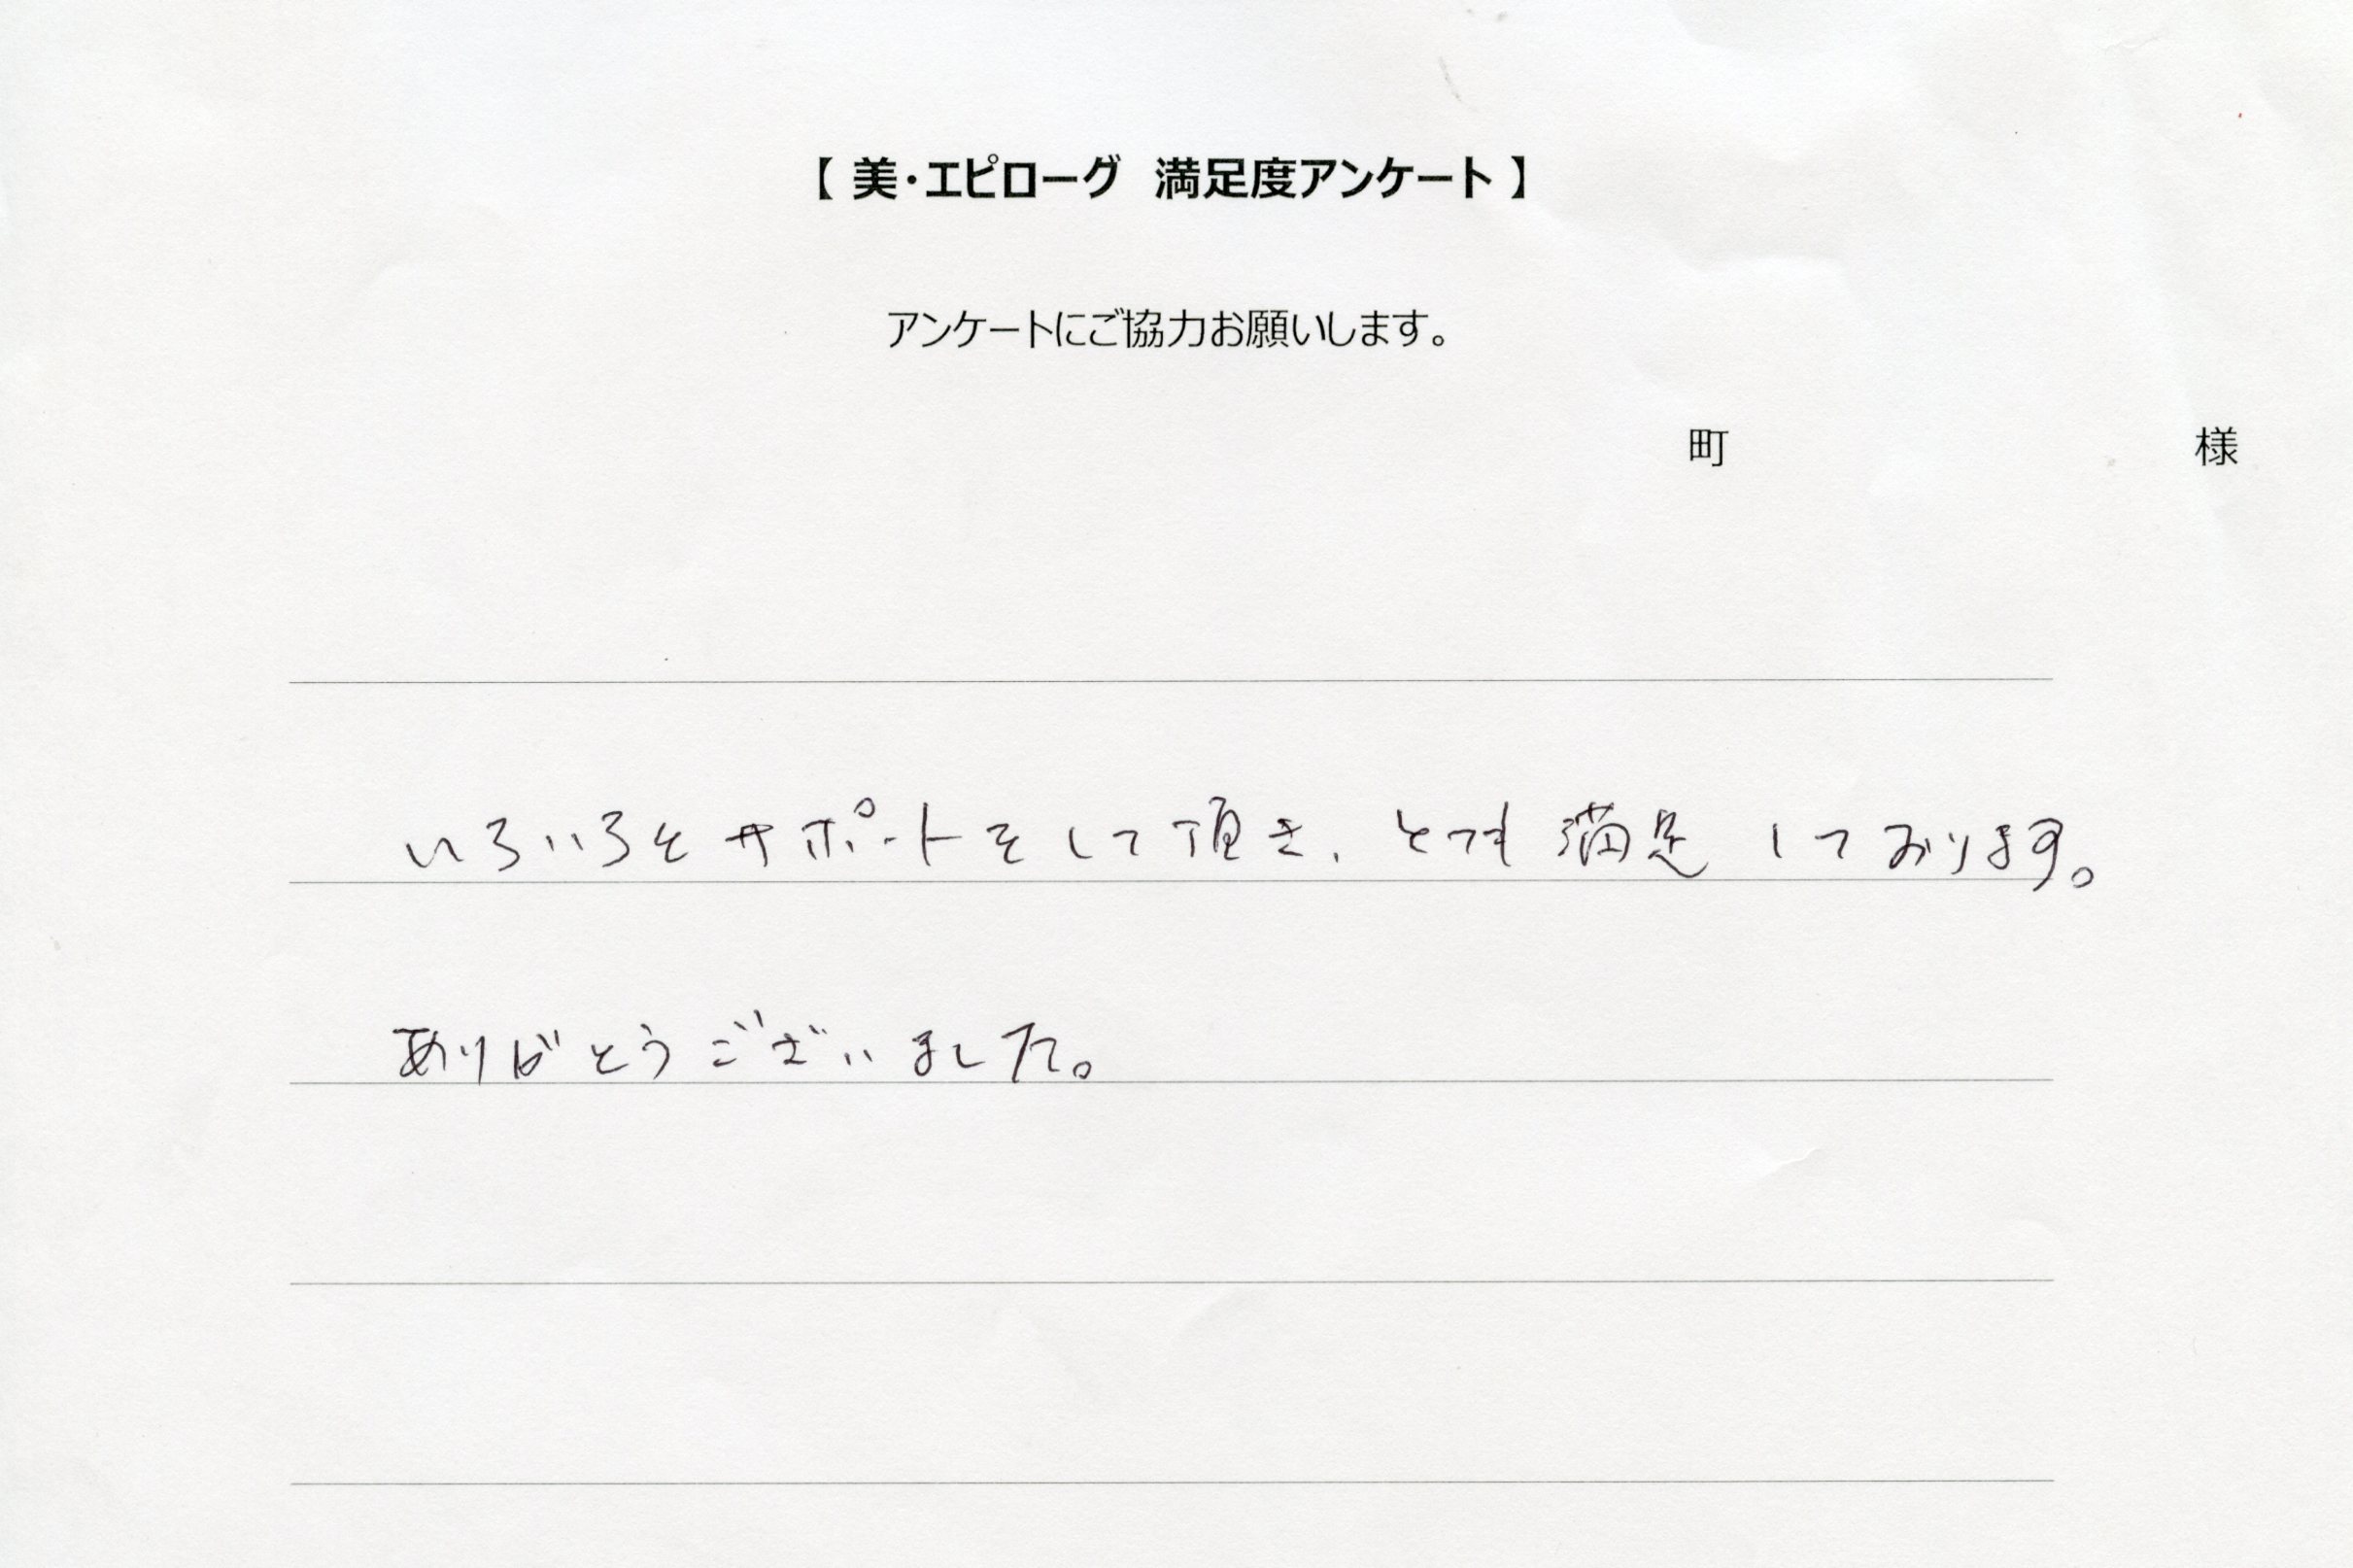 【 美・エピローグ 満足度アンケート 】
アンケートにご協力お願いします。
町 様
いろいろとサポートをして頂き、とても満足しております。
ありがとうございました。